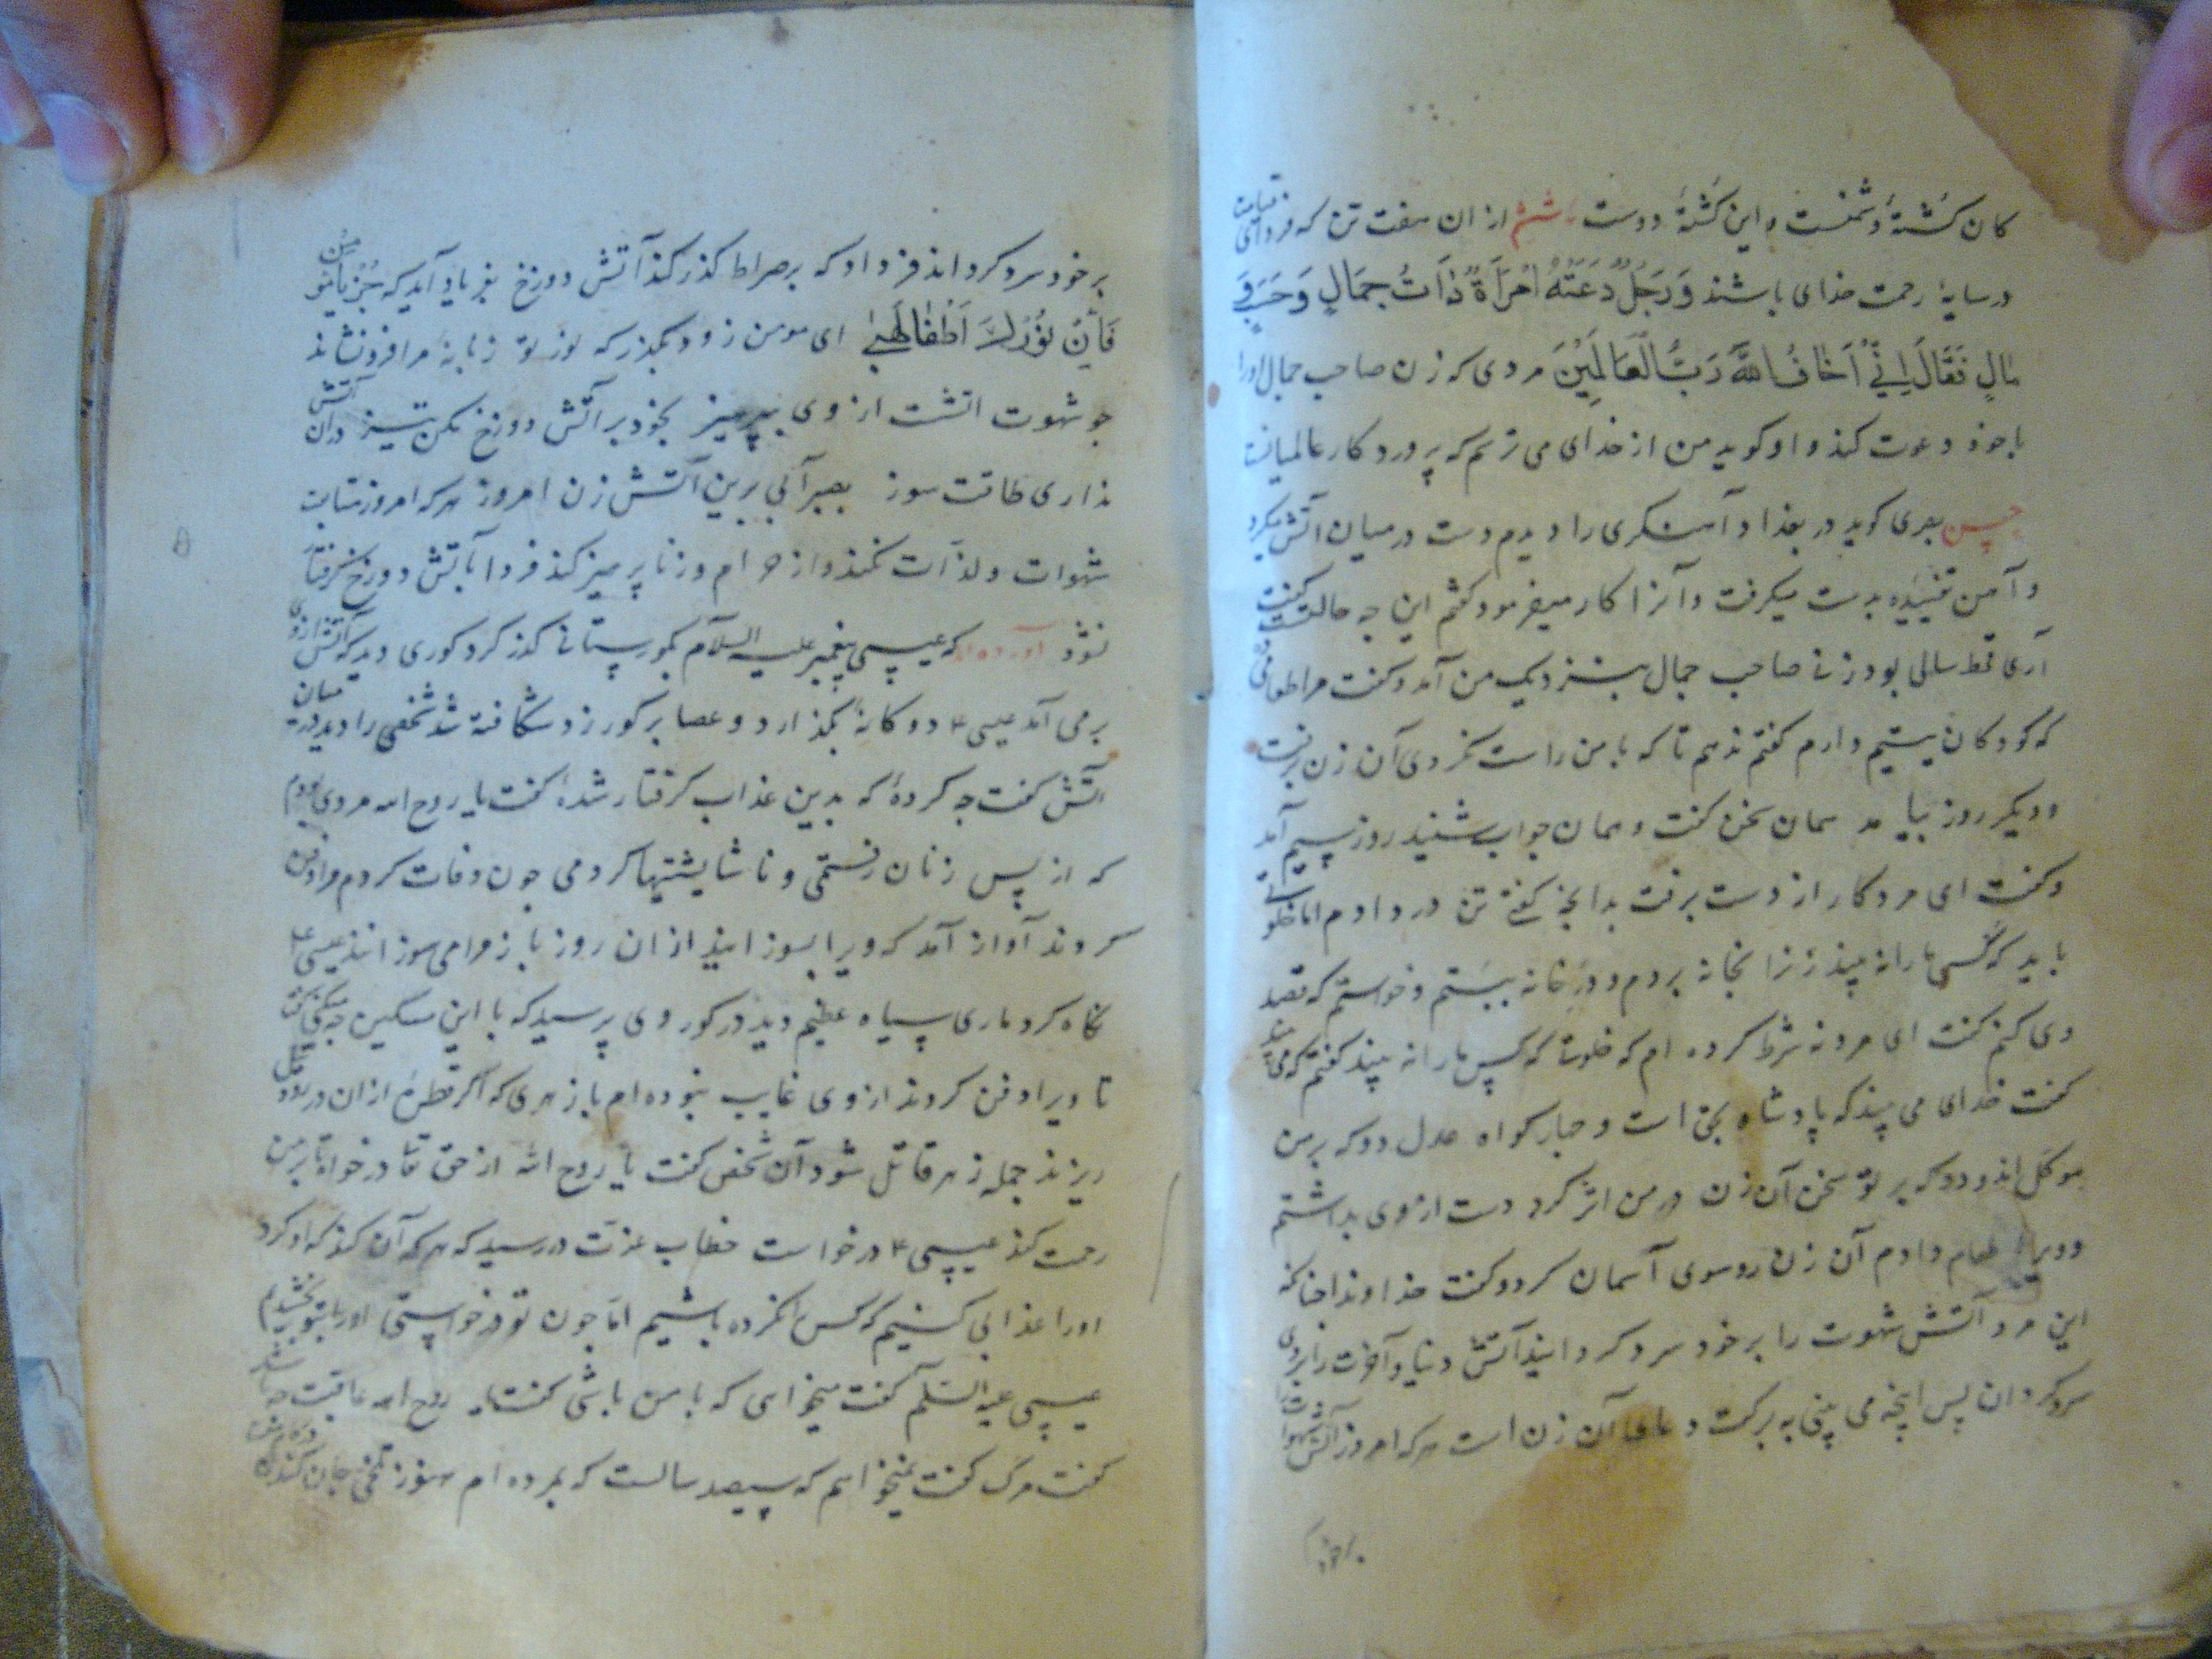 کان کشتهٔ دشمنست و این کشتهٔ دوست ششم از ان هفت تن که فردای قیامت
در سایهٔ رحمت خدای باشند وَرَجُلٌ دَعَتْهُ اِمْرَأَةٌ ذَاتُ جَمَالٍ وَحَسَبٍ وَ
مَالٍ فَقَالَ اِنِّي اَخَافُ اللهَ رَبَّ الْعَالَمِيْنَ مردی که زن صاحب جمال اورا
با خود دعوت کند و او کوید من از خدای می ترسم که پروردکار عالمیانست
حسن بصری کوید در بغداد آهنکری را دیدم دست در میان اتش میکرد
و آهن تفسیده بدست میکرفت و آنرا کار میفرمود کفتم این چه حالتست کفت
آری قحط سالی بود زنی صاحب جمال بنزدیک من آمد و کفت مرا طعامی
که کودکان یتیم دارم کفتم ندهم تا که با من راست نکردی آن زن برفت
و دیکر روز بیامد همان سخن کفت و همان جواب شنید روز سیم آمد
و کفت ای مرد کار از دست برفت بدانچه کفتی تن در دادم اما خلوتی
باید که کسی مارا نه بیند زنرا بخانه بردم و در خانه ببستم و خواستم که قصد
وی کنم کفت ای مرد نه شرط کرده ام که خلوتی که کس مارا نه بیند کفتم که می بیند
کفت خدای می بیند که پادشاه بحق است و چهار کواه عدل دو که بر من
موکل اند و دو که بر تو سخن آن زن در من اثر کرد دست از وی بداشتم
و ویرا طعام دادم آن زن رو سوی آسمان کرد و کفت خداوندا چنانکه
این مرد آتش شهوت را بر خود سرد کردانید آتش دنیا و آخرت را بر وی
سرد کردان پس اینچه می بینی به برکت دعای آن زن است هرکه امروز آتش شهوات را
بر خود سرد کرداند فردا که بر صراط کذر کند آتش دوزخ بفریاد آید که جُزْ یَا مُؤْمِنُ
فَاِنَّ نُوْرَكَ اَطْفَا لَهَبِيْ ای مومن زود بکذر که نور تو زبانهٔ مرا فرونشاند
چو شهوت اتشت از وی بپرهیز بخود بر آتش دوزخ مکن تیز دران آتش
نداری طاقت سوز بصبر آبی برین آتش زن امروز هرکه امروز متابعت
شهوات و لذّات نکند و از حرام و زنا پرهیز کند فردا بآتش دوزخ کرفتار
نشود آورده اند که عیسی پیغمبر علیه السلام بکورستانی کذر کرد کوری دید که آتش ازوی
بر می آمد عیسی ع دوکانهٔ بکذارد و عصا بر کور زد شکافته شد شخصی را دید در میان
آتش کفت چه کردهٔ که بدین عذاب کرفتار شدهٔ کفت یا روح الله مردی بودم
که از پس زنان رفتمی و ناشایستیها کردمی چون وفات کردم مرا دفن
کردند آواز آمد که ویرا بسوزانید از ان روز باز مرا می سوزانند عیسی ع
نکاه کرد ماری سیاه عظیم دید در کور وی پرسید که با این مسکین چه میکنی کفت
تا ویرا دفن کردند از وی غایب نبوده ام با زهری که اکر قطرهٔ از ان در رود نیل
ریزند جمله زهر قاتل شود آن شخص کفت یا روح الله از حق تعا درخواه تا بر من
رحمت کند عیسی ع درخواست خطاب عزّت در رسید که هرکه آن کند که او کرد
اورا عذابی کنیم که کس را نکرده باشیم امّا چون تو درخواستی اورا بتو بخشیدیم
عیسی علیه السّلام کفت میخواهی که با من باشی کفت یا روح الله عاقبت چه باشد
کفت مرک کفت نمیخواهم که سیصد سالست که بمرده ام هنوز تلخی جان کندن